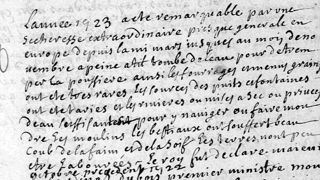 L'année 1723 acte remarquable par vne
secheresse extraordinaire presque generale en
europe depuis la mi mars jusques au mois de no
vembre a peine atil tombe de leau pour detrem
per la poussiere ainsi les fourrages et menus grains
ont ete tres rares les sources des puits et fontaines
ont ete taries et les rivieres ou mises a sec ou
deau suffisantent pour y naviger ou faire mou
dre les moulins les bestiaux ont souffert beau
coub de la faim et de la soif les terres nont peu
etre labourées Le roy fut declare majeur
octobre precedent 1722
dubois premier ministre mou